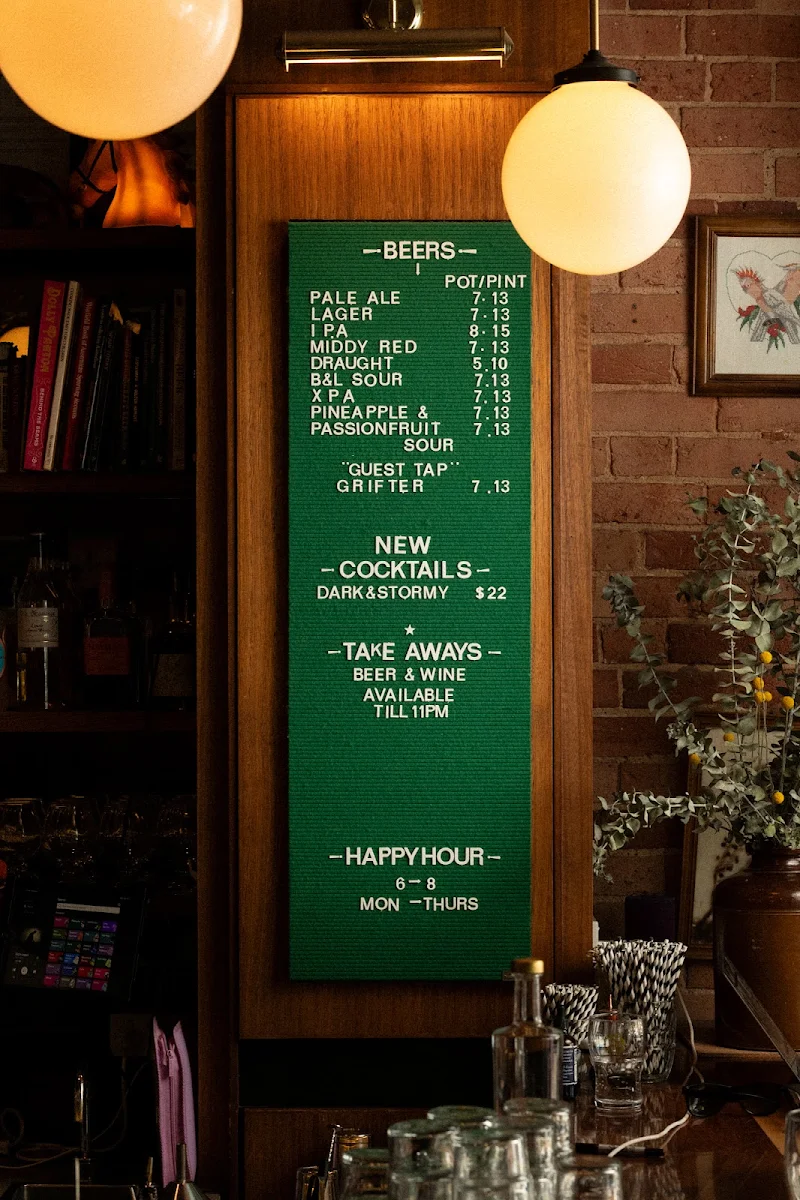 -BEERS-
POT/PINT
PALE ALE 7.13
LAGER 7.13
IPA 8.15
MIDDY RED 7.13
DRAUGHT 5.10
B&L SOUR 7.13
XPA 7.13
PINEAPPLE & 7.13
PASSIONFRUIT 7.13
SOUR
"GUEST TAP"
GRIFTER 7.13
NEW
-COCKTAILS-
DARK&STORMY $22
-TAKE AWAYS-
BEER & WINE
AVAILABLE
TILL 11PM
-HAPPY HOUR-
6-8
MON -THURS
DOLLY PARTON